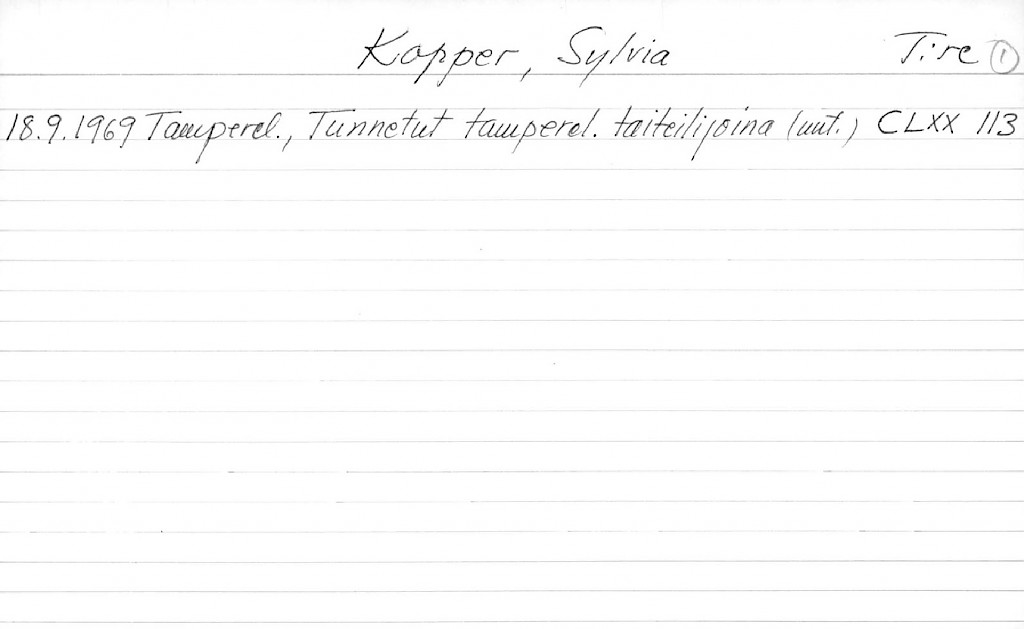 Kopper, Sylvia T:re 1
18.9.1969 Tamperel., Tunnetut tamperel. taiteilijoina (uut.) CLXX 113